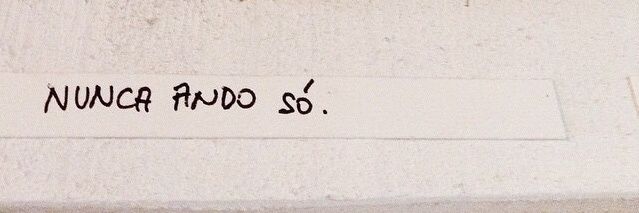 NUNCA ANDO SÓ.